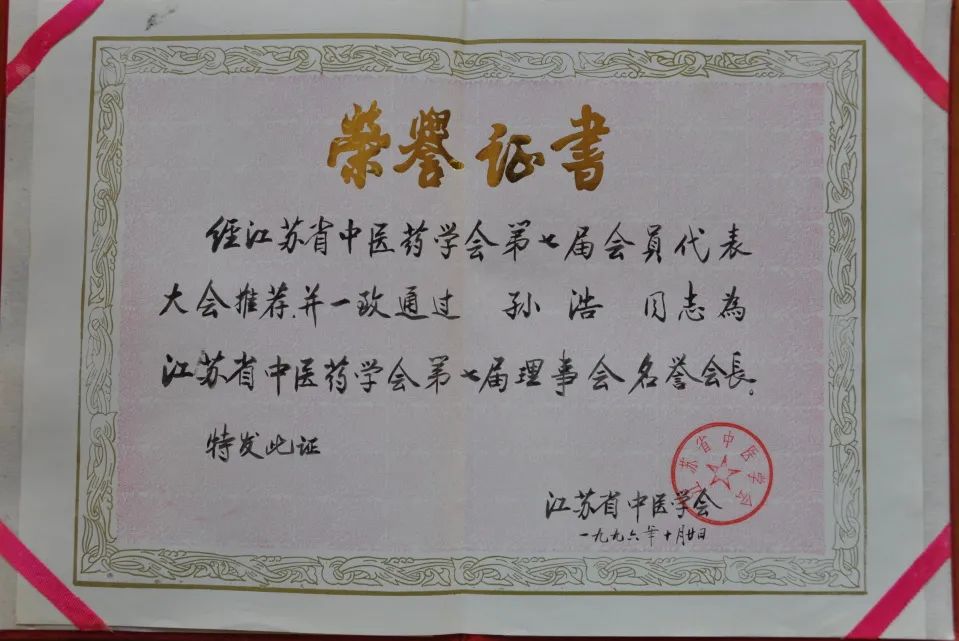 荣誉证书
经江苏省中医药学会第七届会员代表
大会推荐、并一致通过 孙浩 同志為
江苏省中医药学会第七届理事会名誉会長。
特发此证
江苏省中医学会
江苏省中医学会
一九九六年十月廿日